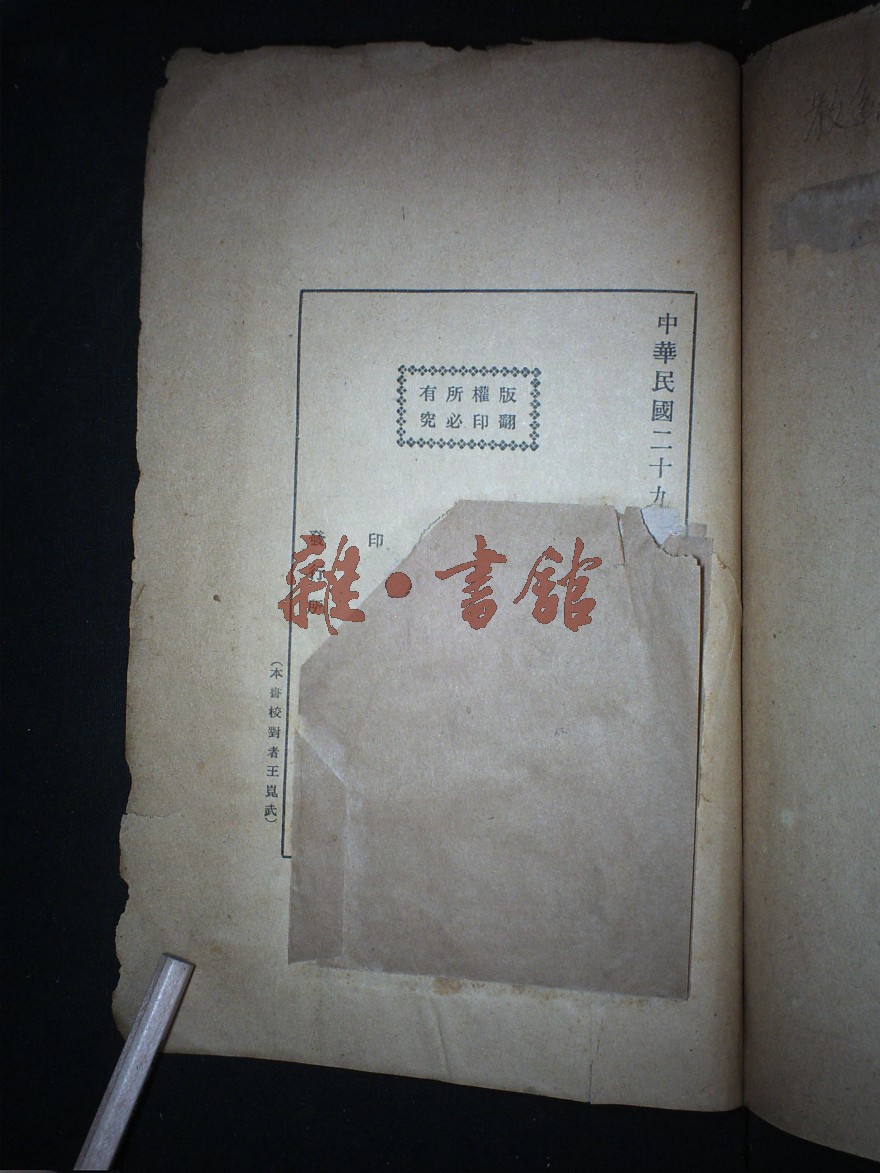 中華民國二十九
版權所有
翻印必究
印
發行所
(本書校對者王崑武)
雜·書館